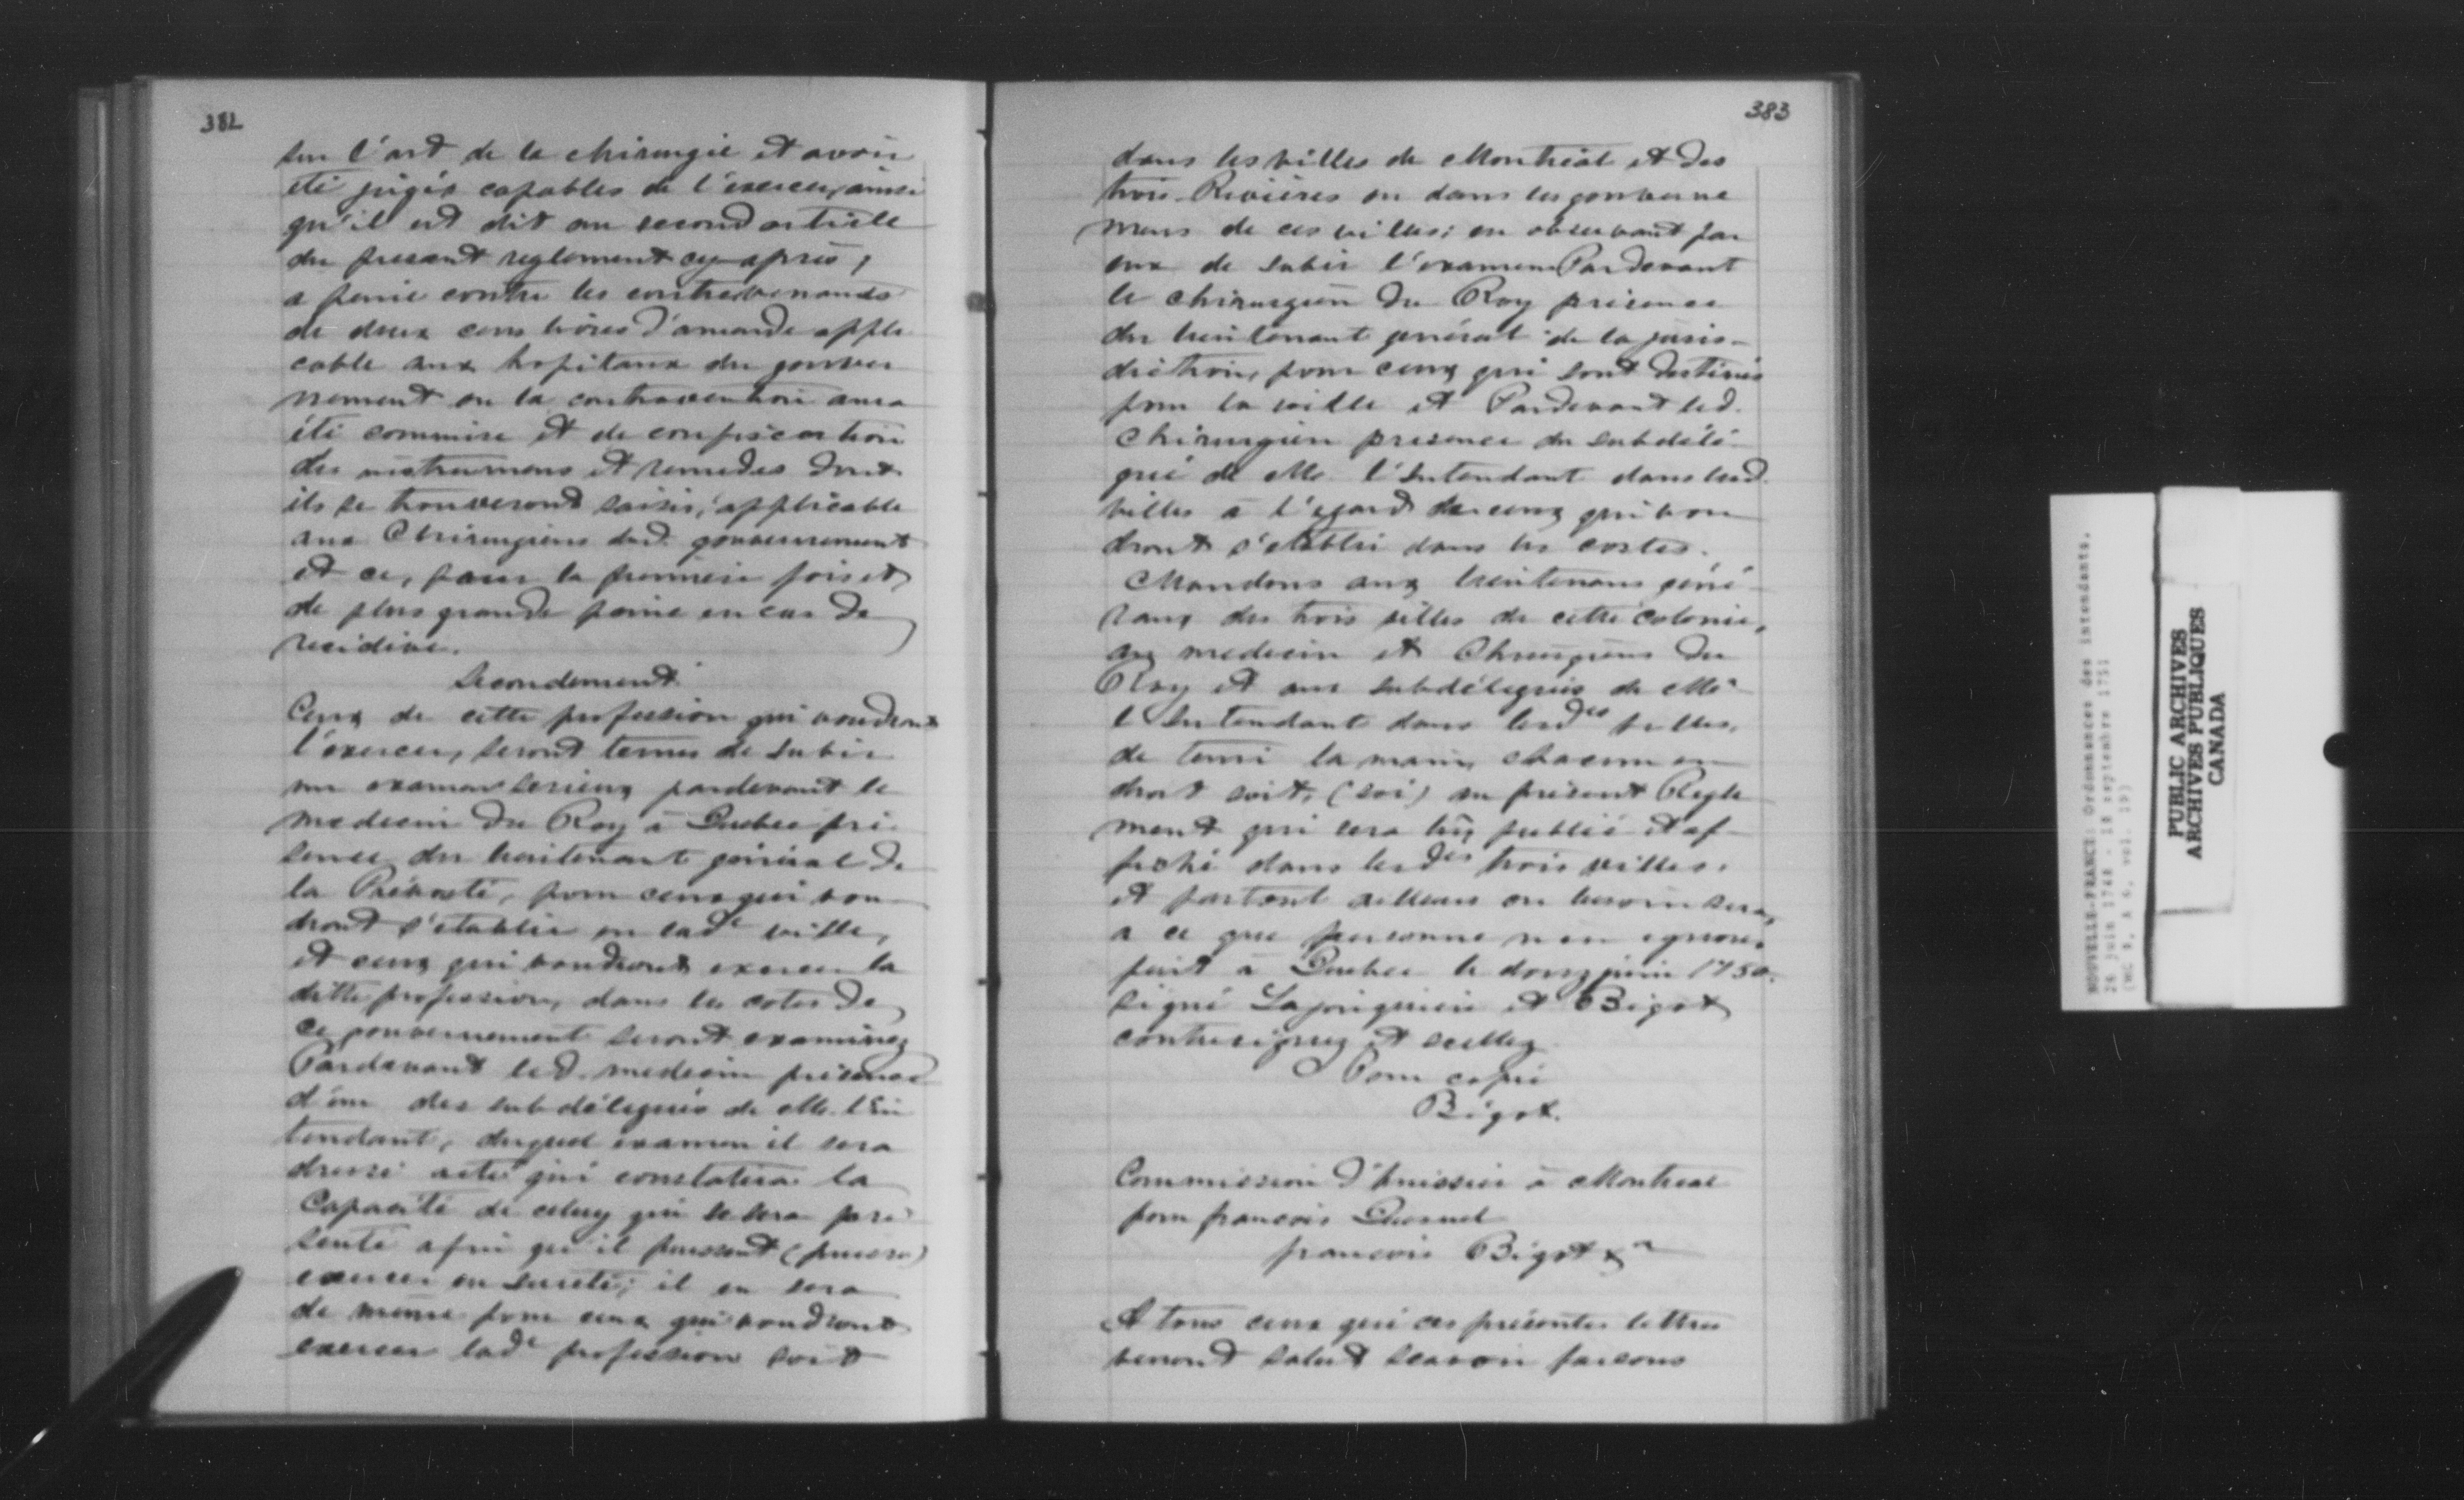 382
sur l'art de la chirurgie et avoir
été jugés capables de l'exercer, ainsi
qu'il est dit au second article
du present reglement cy-après,
a peine contre les contrevenands
de deux cens livres d'amende appli
cable aux hopitaux du gouver
nement ou la contravention aura
été commise et de confiscation
des instrumens et remedes dont
ils se trouveront saisis, applicable
aux Chirurgiens dud. gouvernement
et ce, pour la premiere fois et
de plus grande peine en cas de
recidive.
Secondement
Ceux de cette profession qui voudront
l'exercer, seront tenus de subir
un examen serieux pardevant le
medecin du Roy à Quebec pré
sence du lieutenant général de
la Prévosté, pour ceux qui vou
dront s'établir en lade ville,
et ceux qui voudront exercer la
ditte profession, dans les cotes de
ce gouvernement seront examinez
Pardevant led. medecin présence
d'un des subdélégués de M. l'In
tendant, duquel examen il sera
dressé acte qui constatera la
Capacité de celuy qui se sera pré
senté afin qu'il puissent (puisse)
exercer en sureté; il en sera
de meme pour ceux qui voudront
exercer lade profession soit
383
dans les villes de Montréal et des
trois-Rivières ou dans les gouverne
mens de ces villes; en observant par
eux de subir l'examen Pardevant
le chirurgien du Roy présence
du lieutenant général de la juris-
diction, pour ceux qui sont destinés
pour la ville et Pardevant led.
Chirurgien presence du subdélé-
gué de M. l'Intendant dans lesd.
villes à l'egard de ceux qui vou
dront s'etablir dans les costes.
Mandons aux lieutenans géné-
raux des trois villes de cette colonie,
aux medecin et Chirurgiens du
Roy et aux subdélegués de M.
l'Intendant dans lesdes villes,
de tenir la main, chacun en
droit soit, (soi) au présent Regle
ment qui sera lû, publié et af-
fiché dans lesdes trois villes.
et partout ailleurs ou besoin sera,
a ce que personne n'en ignore.
fait à Quebec le douze juin 1750.
signé Lajonquiere et Bigot
contresignez et scellez
Pour copie
Bigot.
Commission d'huissier à Montreal
pour françois
françois Bigot &a
A tous ceux qui ces présentes lettres
verront salut scavoir faisons
NOUVELLE-FRANCE: Ordonnances des intendants,
26 juin 1748 - 18 septembre 1751
(MG 8, A 6, vol. 19)
PUBLIC ARCHIVES
ARCHIVES PUBLIQUES
CANADA